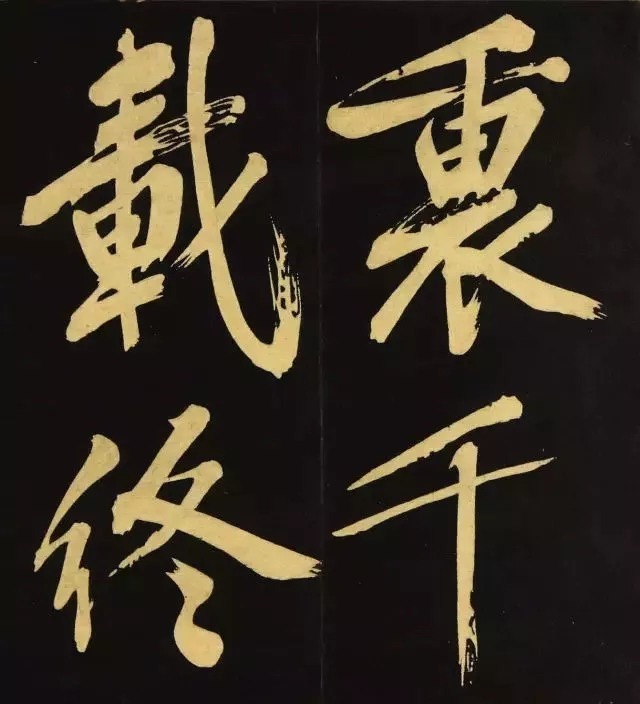 裏千
載終